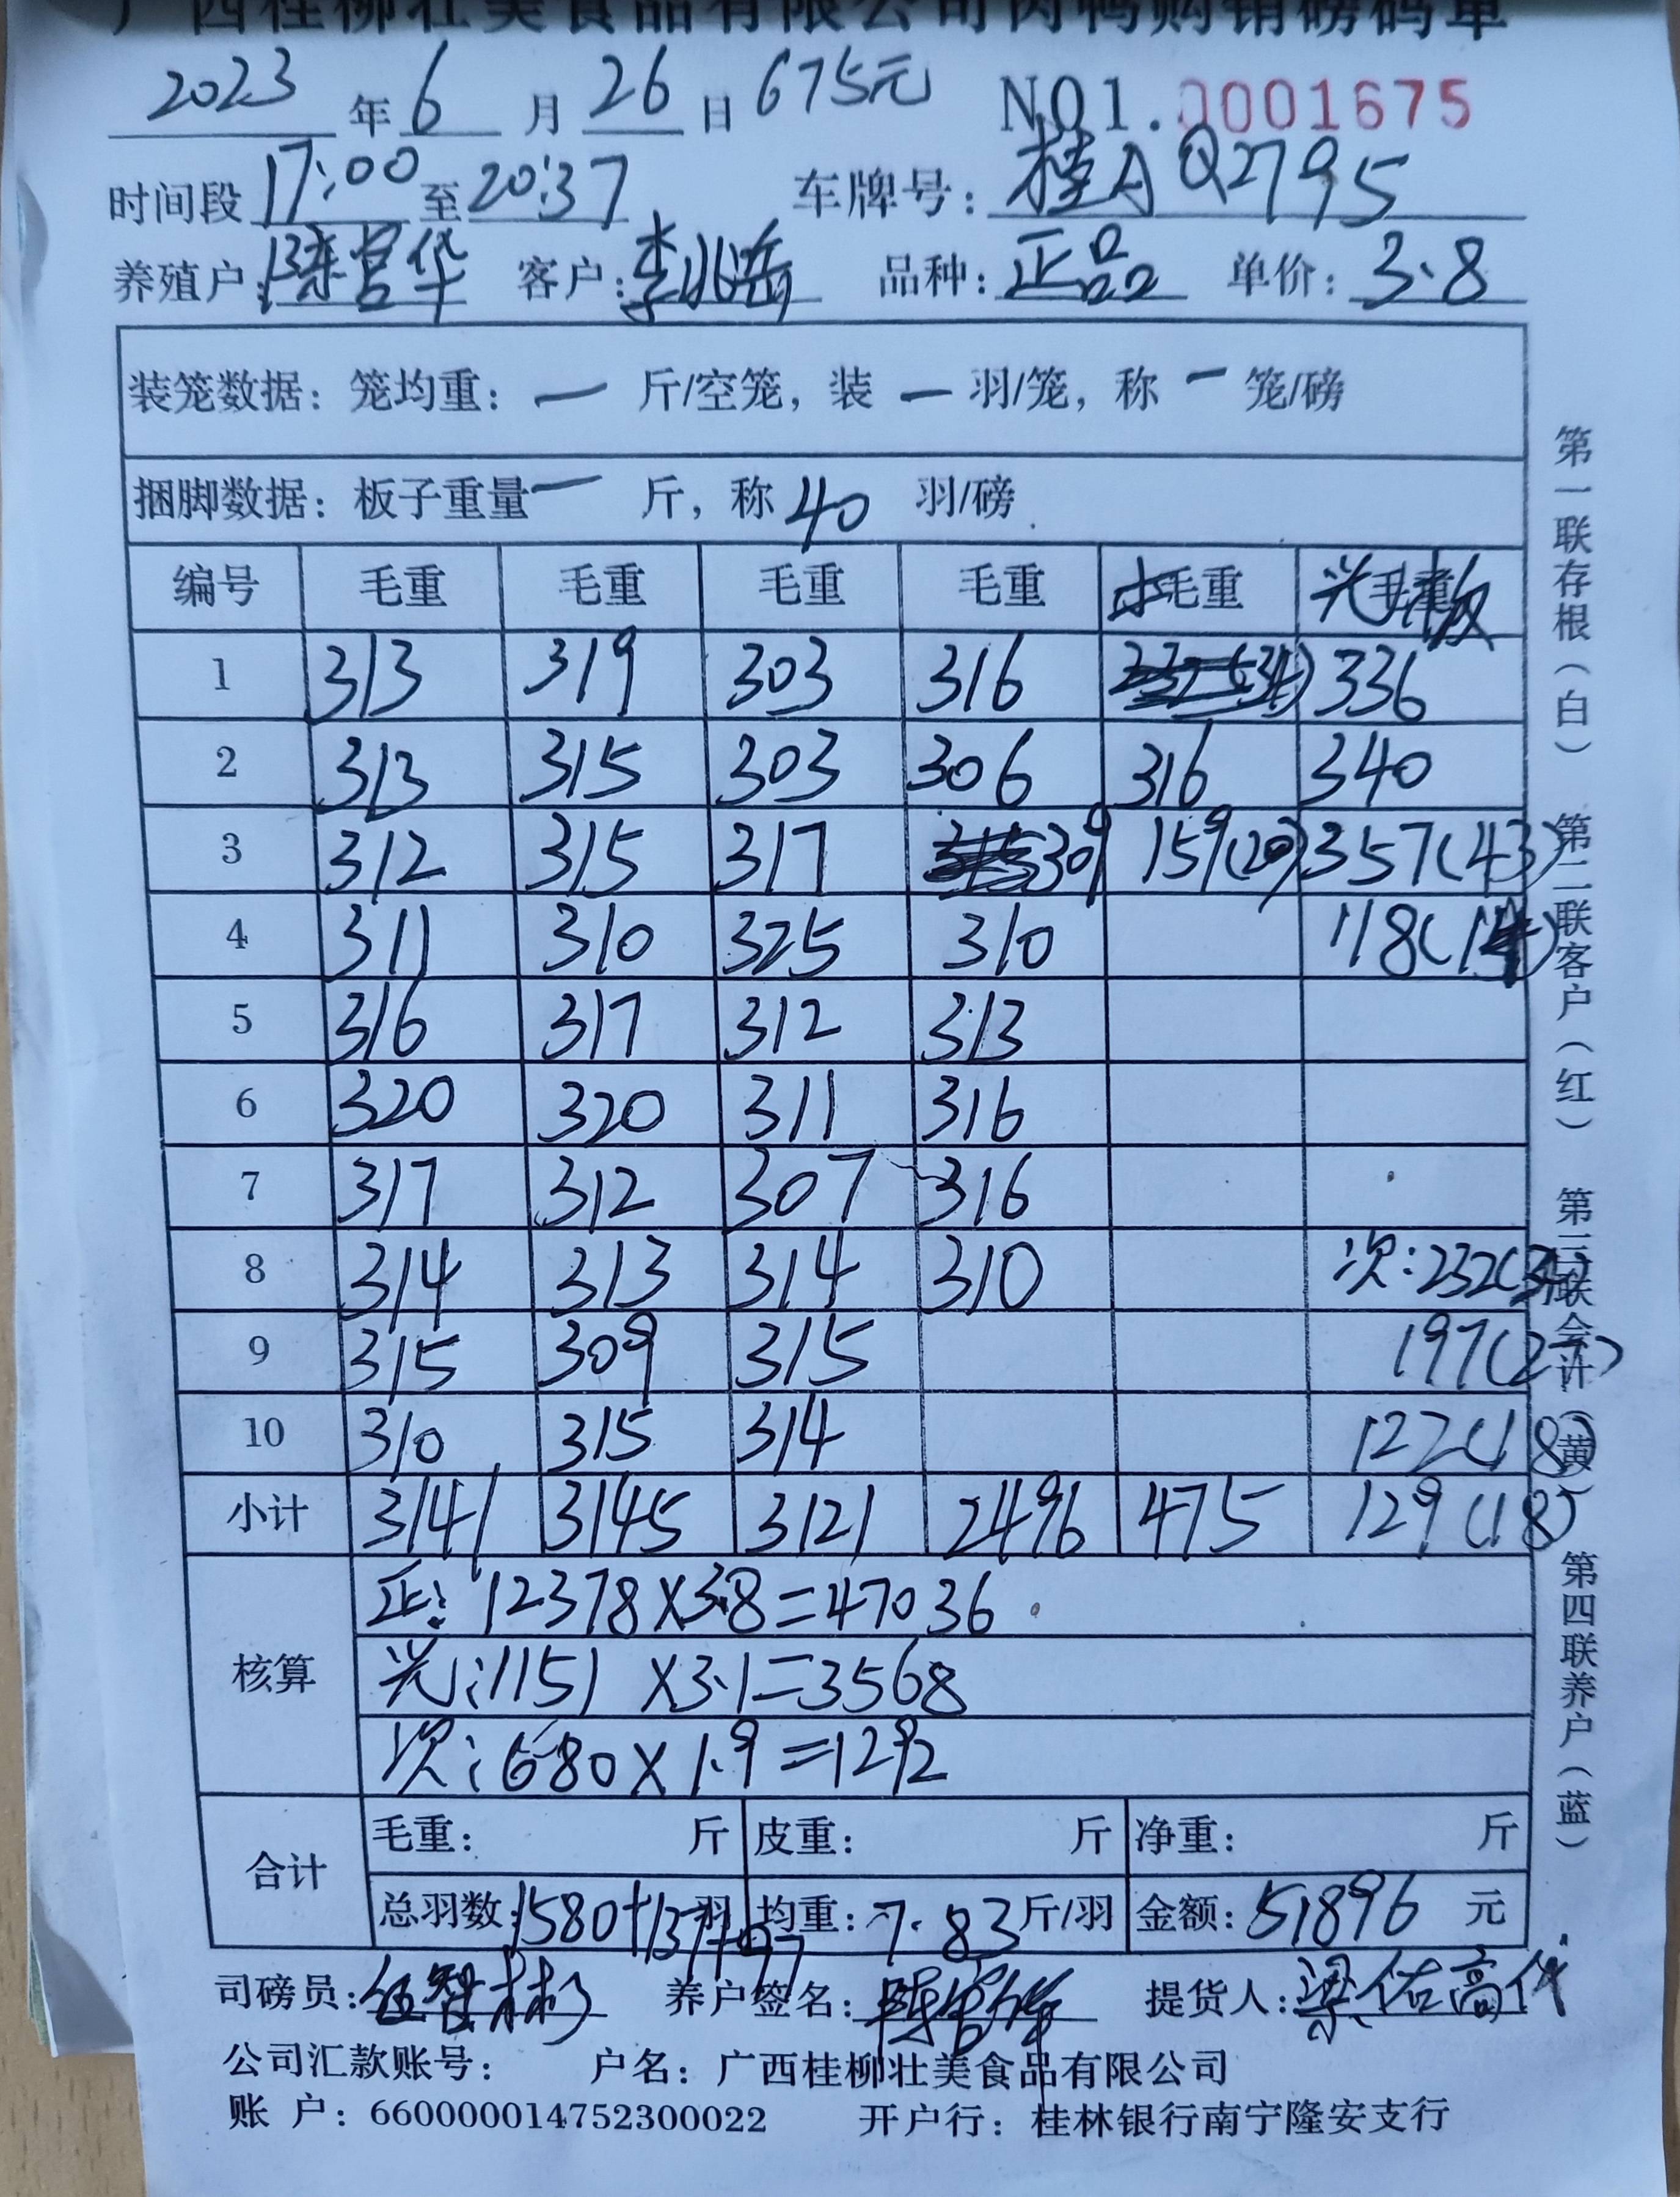 广西桂柳壮美食品有限公司肉鸭购销磅码单
2023年6月26日 675元 NO1.0001675
时间段 17:00 至 20:37 车牌号: 桂A Q2795
养殖户: 陈官华 客户: 李兆岳 品种: 正品 单价: 3.8
装笼数据: 笼均重: 一 斤/空笼, 装 一 羽/笼, 称 一 笼/磅
捆脚数据: 板子重量 一 斤, 称 40 羽/磅
编号 毛重 毛重 毛重 毛重 毛重 毛重
1 313 319 303 316 336
2 313 315 303 306 316 340
3 312 315 317 309 159(20) 357(43)
4 311 310 325 310 118(14)
5 316 317 312 313
6 320 320 311 316
7 317 312 307 316
8 314 313 314 310 次:232(34)
9 315 309 315 197(27)
10 310 315 314 122(18)
小计 3141 3145 3121 2496 475 129(18)
核算
正: 12378×3.8=47036
光:1151 ×3.1=3568
次:680×1.9=1292
合计
毛重: 斤 皮重: 斤 净重: 斤
总羽数:1580+137+97 羽 均重: 7.83 斤/羽 金额: 51896 元
司磅员: 养户签名: 陈官华 提货人: 梁佑高代
公司汇款账号: 户名: 广西桂柳壮美食品有限公司
账 户: 660000014752300022 开户行: 桂林银行南宁隆安支行
第一联存根(白) 第二联客户(红) 第三联会计(黄) 第四联养户(蓝)